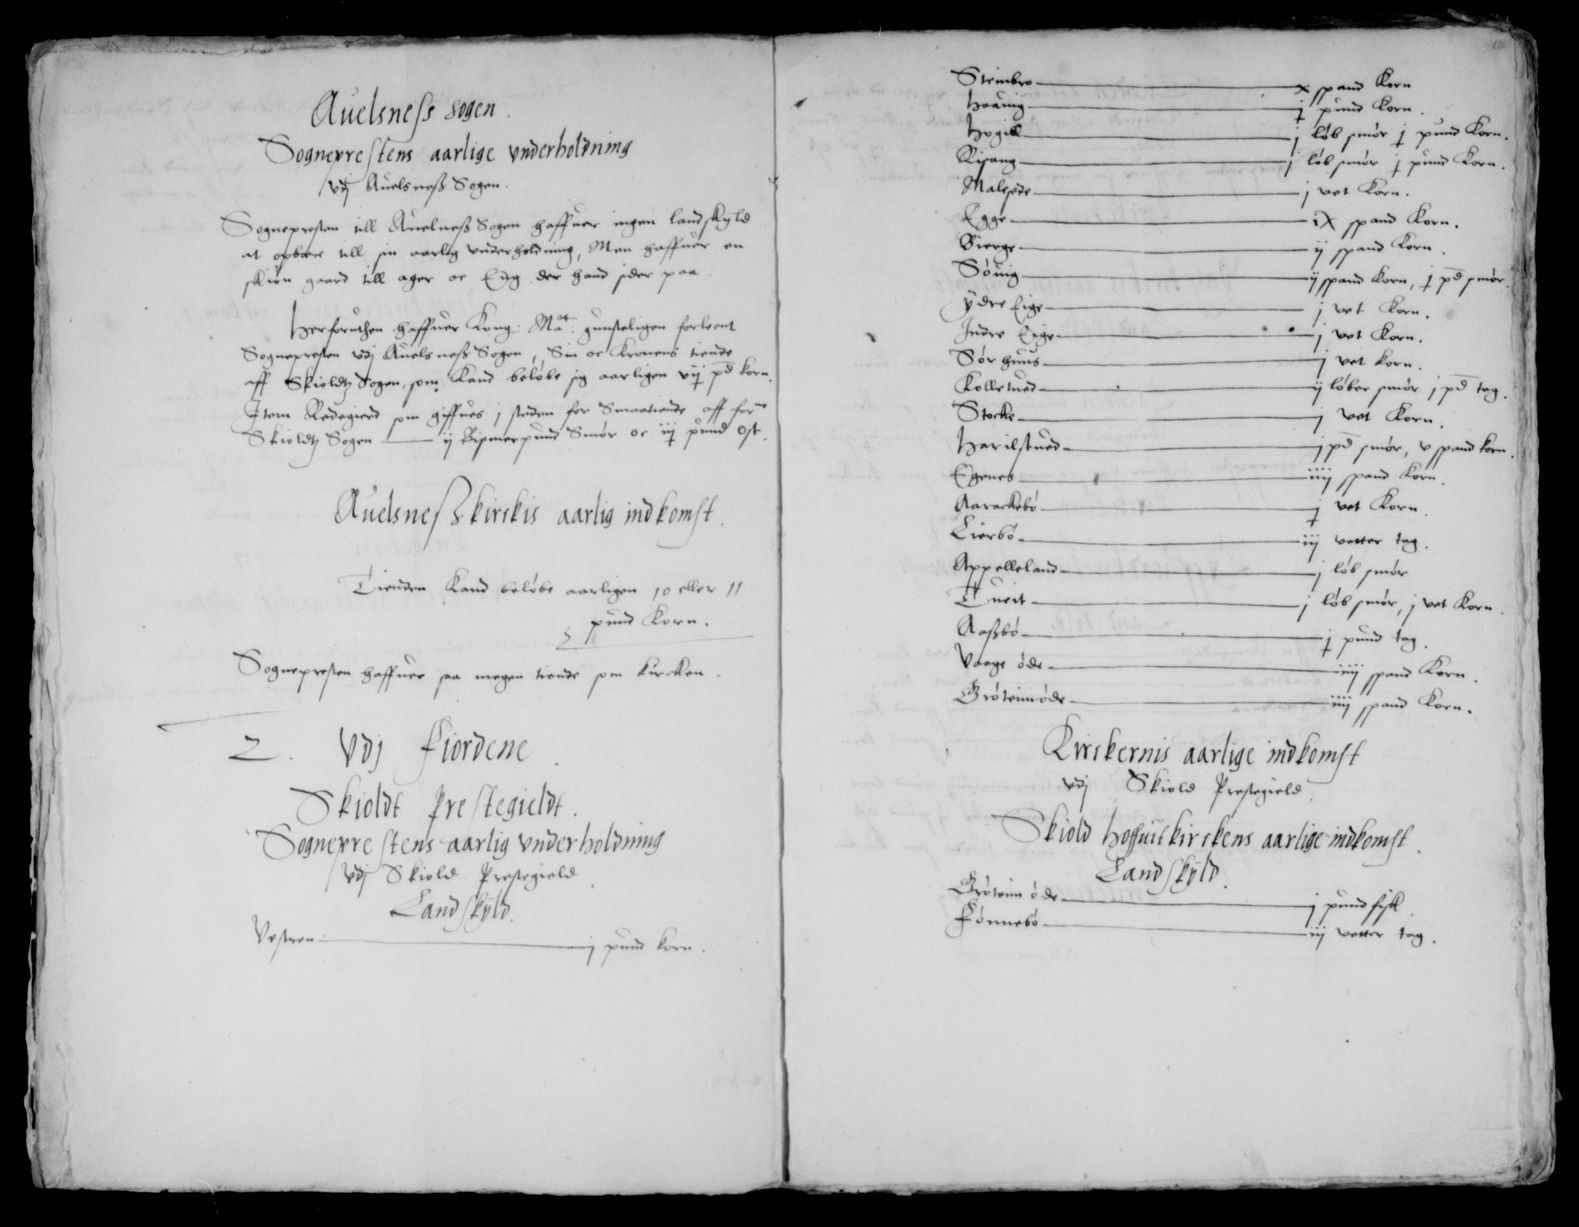 Auelsness sogen.
Sogneprestens aarlige vnderholdning
vdj Auelsneß Sogen.
Sognepresten till Auelneß Sogen haffuer ingen landskyld
at opbære till sin aarlig vnderholdning, Men haffuer en
skiøn gaard till ager oc Eng der hand sider paa.
Herforuthen haffuer Kong: Mat: gunsteligen forleent
Sognepresten vdj Auelsneß Sogen, Sin oc Kronens tiende
aff Skioldtz Sogen, som Kand beløbe sig aarligen vij pd korn.
Item Redegierd som giffues j steden for Smaatiende aff forne
Skioldtz Sogen — ij Bismerpund Smør oc iij pund Ost.
Auelsneß kirckis aarlig indkomst.
Tienden Kand beløbe aarligen 10 eller 11
pund Korn.
Sognepresten haffuer saa megen tiende som kircken.
2. Vdj Fiordene.
Skioldt Prestegieldt.
Sogneprestens aarlig vnderholdning
vdj Skiold Prestegield.
Landskyld.
Vestren — j pund korn.
Steinbro — x spand Korn
Høuing — j pund Korn.
Hogill — j løb smør j pund Korn.
Risang — j løb smør j pund Korn.
Malesede — j vet Korn.
Egge — ix spand Korn.
Bierge — ij spand Korn.
Søuig — ij spand Korn, j pd smør.
ydre Eige — j vet Korn.
Indre Eige — j vet Korn.
Sørhuus — j vet korn.
Kolletued — ij løber smør j pd tag.
Stocke — j vet Korn.
Harilstued — j pd smør, v spand korn.
Egenes — iiij spand Korn.
Aarackebø — j vet Korn.
Lierbø — iij vetter tag.
Appelleland — j løb smør
Tueit — j løb smør, j vet Korn.
Aaßbø — j pund tag.
Vaage øde — iiij spand Korn.
Grøteim øde — iiij spand Korn.
Kirckernis aarlige indkomst
vdj Skiold Prestegield.
Skiold hoffuitkirckens aarlige indkomst.
Landskyld.
Grøteim øde — j pund fisk
Fønnebø — iij vetter tag.